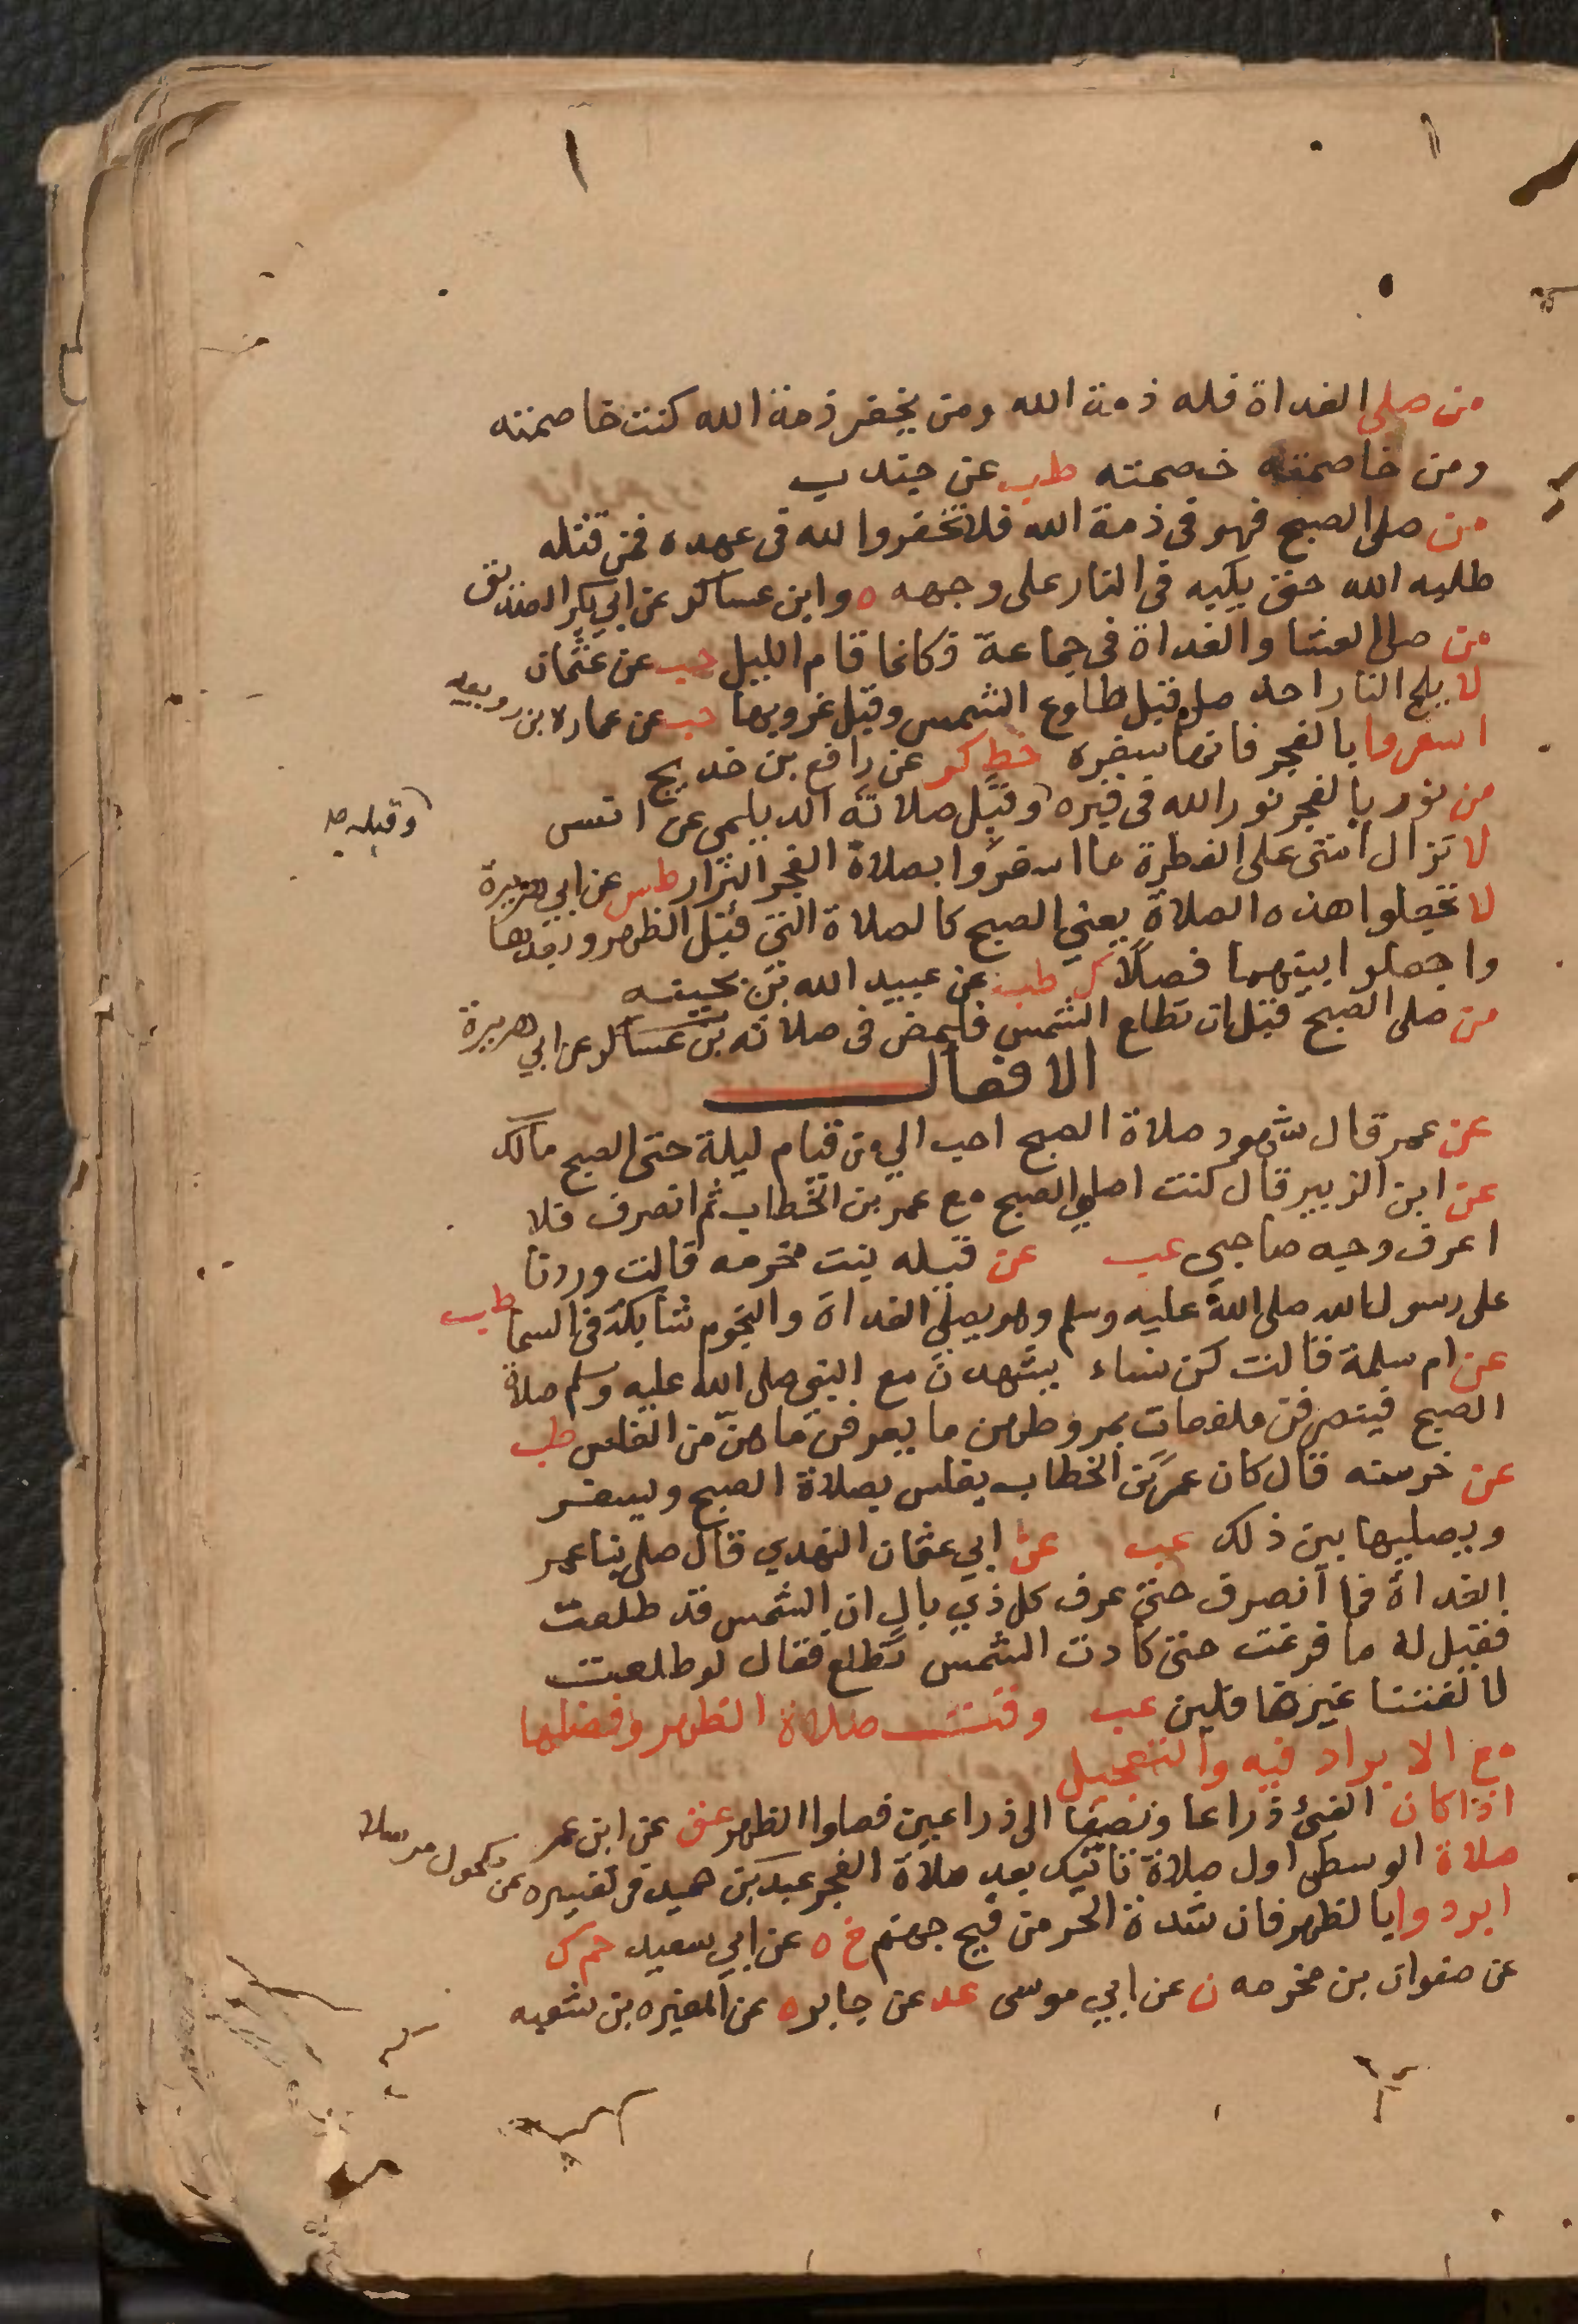 من صلى الغداة فله ذمة الله ومن يخفر ذمة الله كنت خاصمته
ومن خاصمته خصمته طب عن جندب
من صلى الصبح فهو في ذمة الله فلا تخفروا لله في عهده فمن قتله
طلبه الله حتى يكبه في النار على وجهه ه وابن عساكر عن ابي بكر الصديق
من صلى العشا والغداة في جماعة فكانما قام الليل حب عن عثمان
لا يلج النار احد صلى قبل طلوع الشمس وقبل غروبها حب عن عماره ابن رويبه
اسفروا بالفجر فانها سفره خط كر عن رافع بن خديج
من نور بالفجر نور الله في قبره وقبل صلاته الديلمي عن انس
وقبلبه
لا تزال امتي على الفطرة ما اسفروا بصلاة الفجر البزار طس عن ابي هريرة
لا تجعلوا هذه الصلاة يعني الصبح كالصلاة التي قبل الظهر وبعدها
واجعلوا بينهما فصلا ك طب عن عبيد الله بن بحينه
من صلى الصبح قبل ان تطلع الشمس فليمض في صلاته بن عساكر عن ابي هريرة
الافعال
عن عمر قال شهود صلاة الصبح احب الي من قيام ليلة حتى الصبح مالك
عن ابن الزبير قال كنت اصلي الصبح مع عمر بن الخطاب ثم انصرف فلا
اعرف وجه صاحبي عب عن قيله بنت مخرمه قالت وردنا
على رسول الله صلى الله عليه وسلم وهو يصلي الغداة والنجوم شابكة في السما طب
عن ام سلمة قالت كن نساء يشهدن مع النبي صلى الله عليه وسلم صلاة
الصبح فينصرفن ملفعات بمروطهن ما يعرفن ما هن من الغلس طب
عن خرسته قال كان عمر بن الخطاب يغلس بصلاة الصبح ويسفر
ويصليها بين ذلك عب عن ابي عثمان النهدي قال صلى بنا عمر
الغداة فما انصرف حتى عرف كل ذي بال ان الشمس قد طلعت
فقيل له ما فرغت حتى كادت الشمس تطلع فقال لو طلعت
لالفتنا غير غافلين عب وقت صلاة الظهر وفضلها
مع الابراد فيه والتعجيل
اذا كان الفئ ذراعا ونصفا الى ذراعين فصلوا الظهر عق عن ابن عمر
صلاة الوسطى اول صلاة تاتيك بعد صلاة الفجر عبد بن حميد في تفسيره عن مكحول مرسلا
ابردوا بالظهر فان شدة الحر من فيح جهنم خ ه عن ابي سعيد حم ك
عن صفوان بن مخرمه ن عن ابي موسى عد عن جابر ه عن المغيره بن شعبه